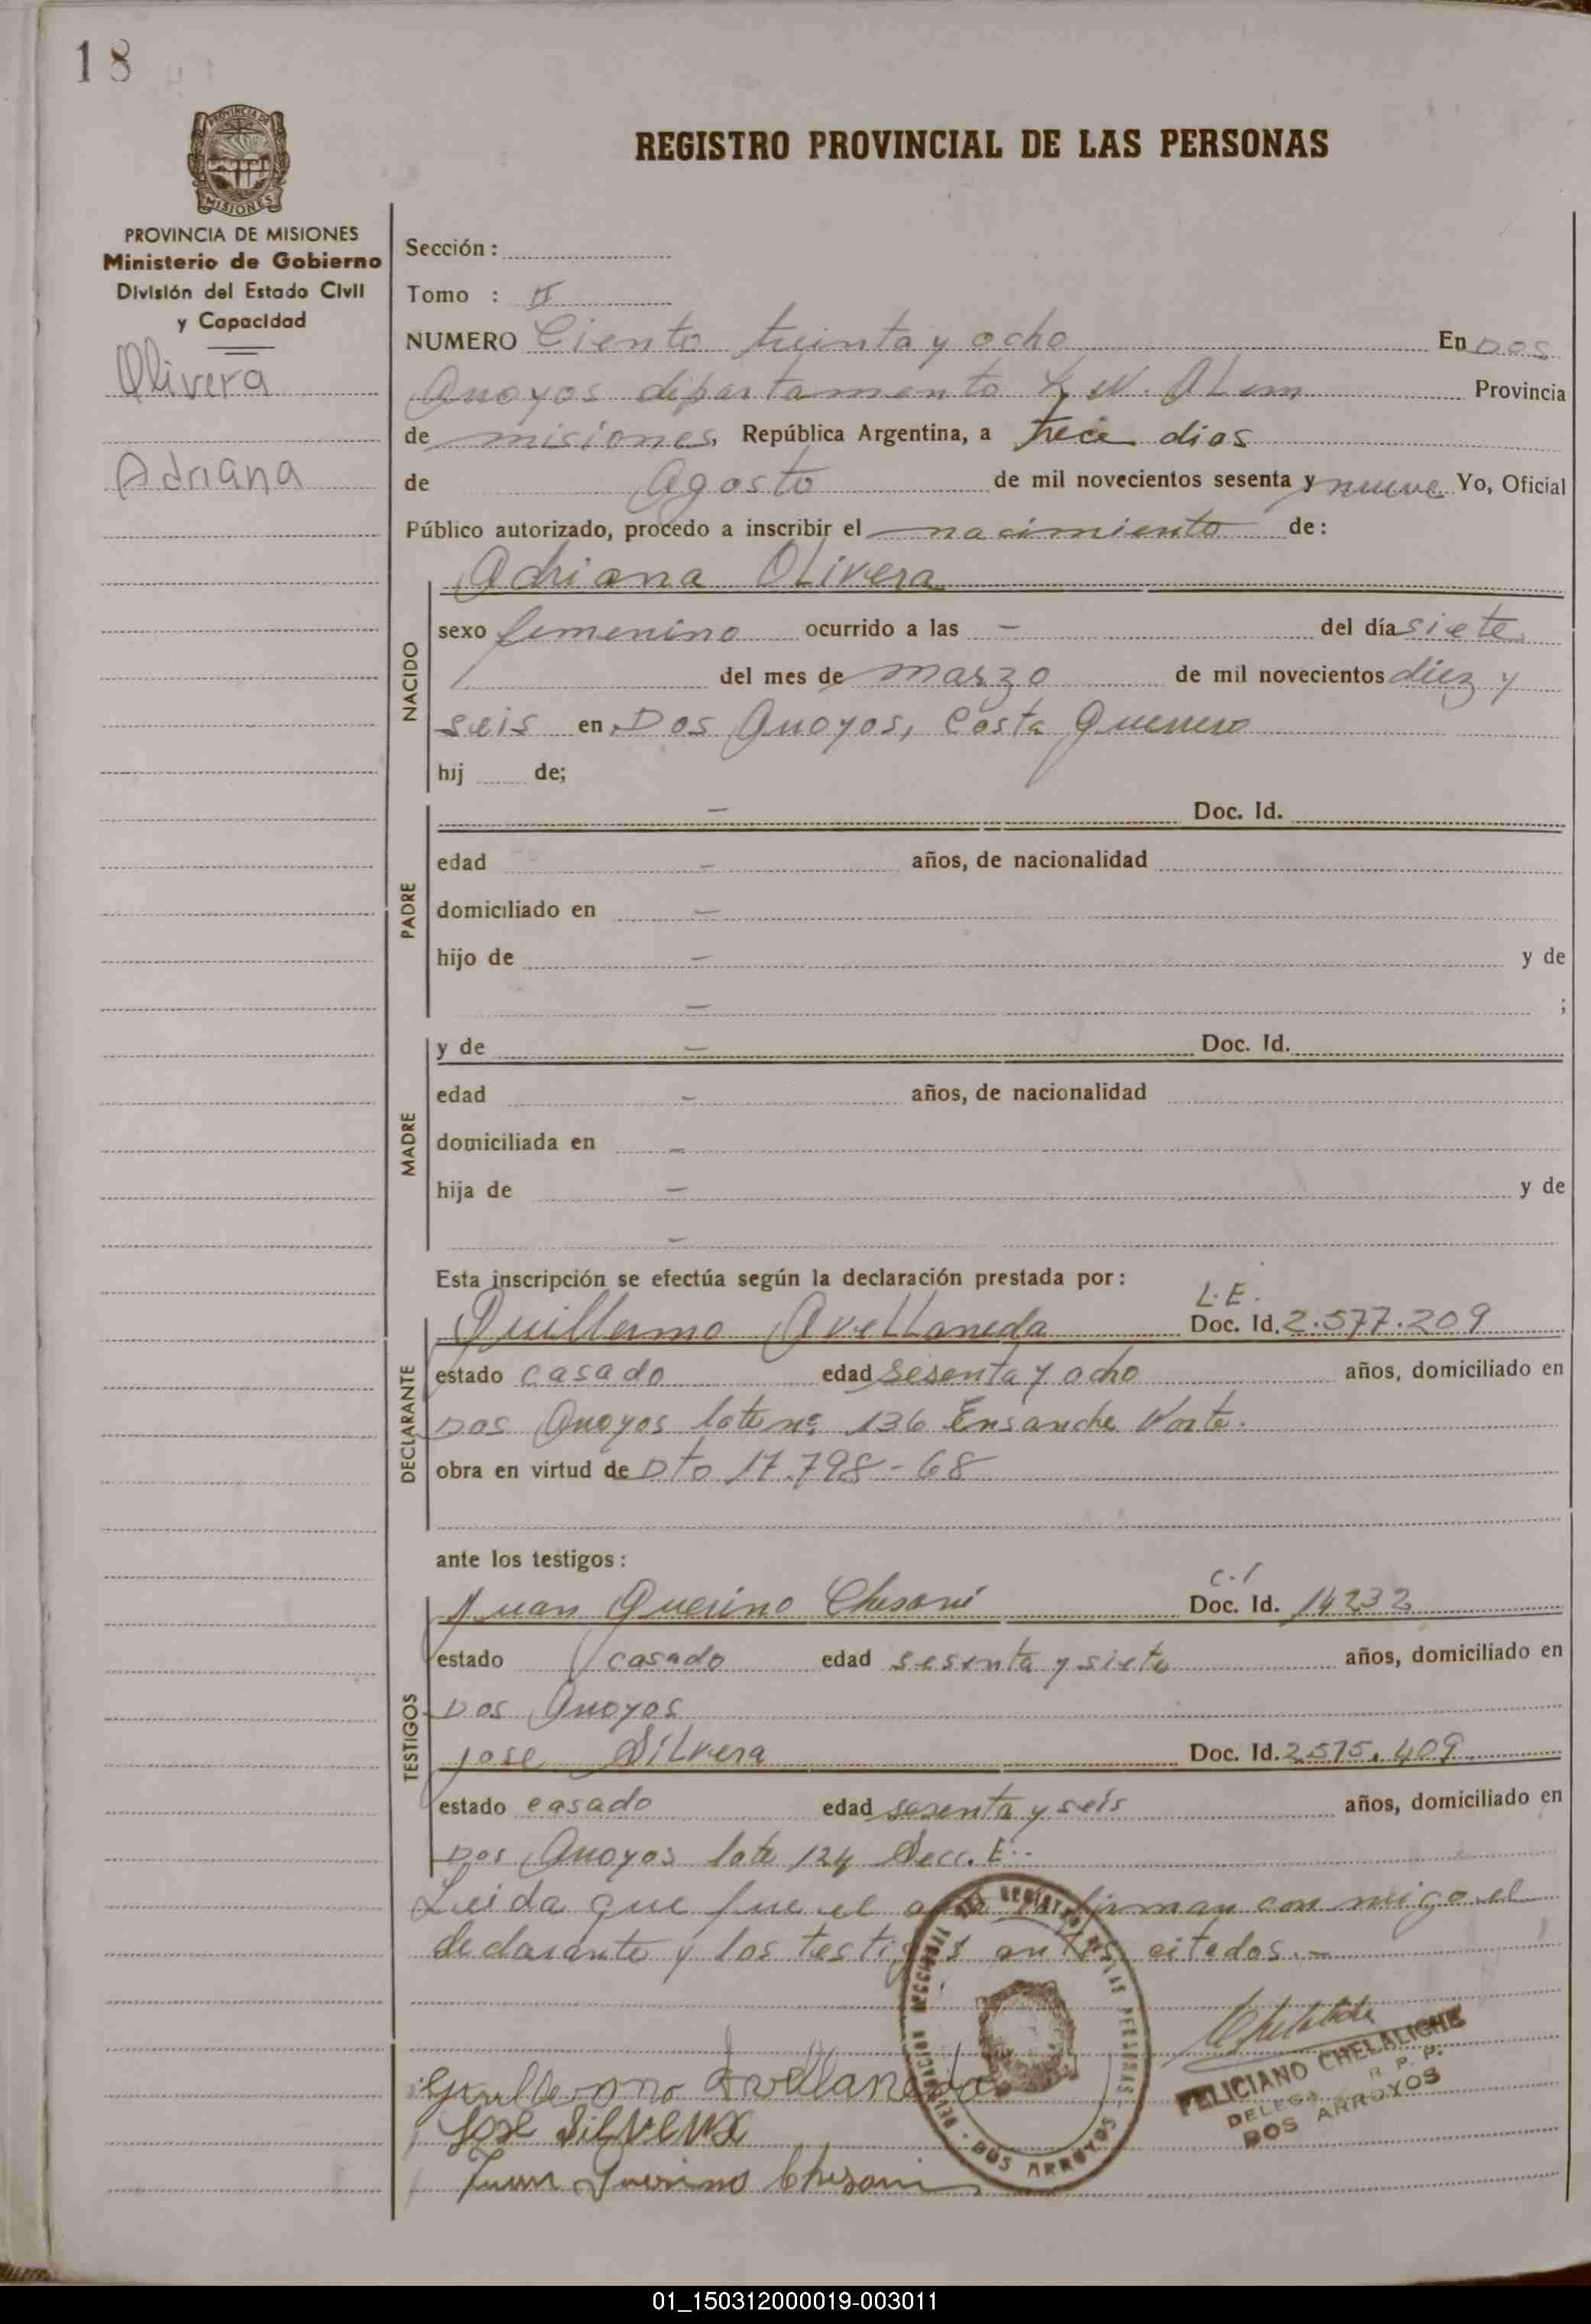 18
PROVINCIA DE
MISIONES
REGISTRO PROVINCIAL DE LAS PERSONAS
PROVINCIA DE MISIONES
Ministerio de Gobierno
División del Estado Civil
y Capacidad
Olivera
Adriana
Sección :
Tomo : II
NUMERO Ciento treinta y ocho En Dos
Arroyos departamento L. N. Alem Provincia
de misiones, República Argentina, a trece dias
de Agosto de mil novecientos sesenta y nueve Yo, Oficial
Público autorizado, procedo a inscribir el nacimiento de:
NACIDO
Adriana Olivera
sexo femenino ocurrido a las - del día siete
del mes de marzo de mil novecientos diez y
seis en Dos Arroyos, Costa Guerrero
hij de;
PADRE
- Doc. Id.
edad - años, de nacionalidad
domiciliado en -
hijo de - y de
- ;
MADRE
y de - Doc. Id.
edad - años, de nacionalidad
domiciliada en -
hija de - y de
-
Esta inscripción se efectúa según la declaración prestada por:
DECLARANTE
L.E.
Guillermo Avellaneda Doc. Id. 2.577.209
estado casado edad sesenta y ocho años, domiciliado en
Dos Arroyos lote nº 136 Ensanche Norte.
obra en virtud de Dto 17.798-68
ante los testigos:
TESTIGOS
C.I
Juan Querino Chesani Doc. Id. 14232
estado casado edad sesenta y siete años, domiciliado en
Dos Arroyos
Jose Silvera Doc. Id. 2.575.409
estado casado edad sesenta y seis años, domiciliado en
Dos Arroyos lote 124 Secc. E.-
Leida que fue el acta firman con migo el
declarante y los testigos antes citados.-
REGISTRO DE LAS PERSONAS - DOS ARROYOS - DELEGACION SECCIONAL
FELICIANO CHELALICHE
R. P. P.
DOS ARROYOS
Guillermo Avellaneda
Jose Silvera
Juan Querino Chesani
01_150312000019-003011